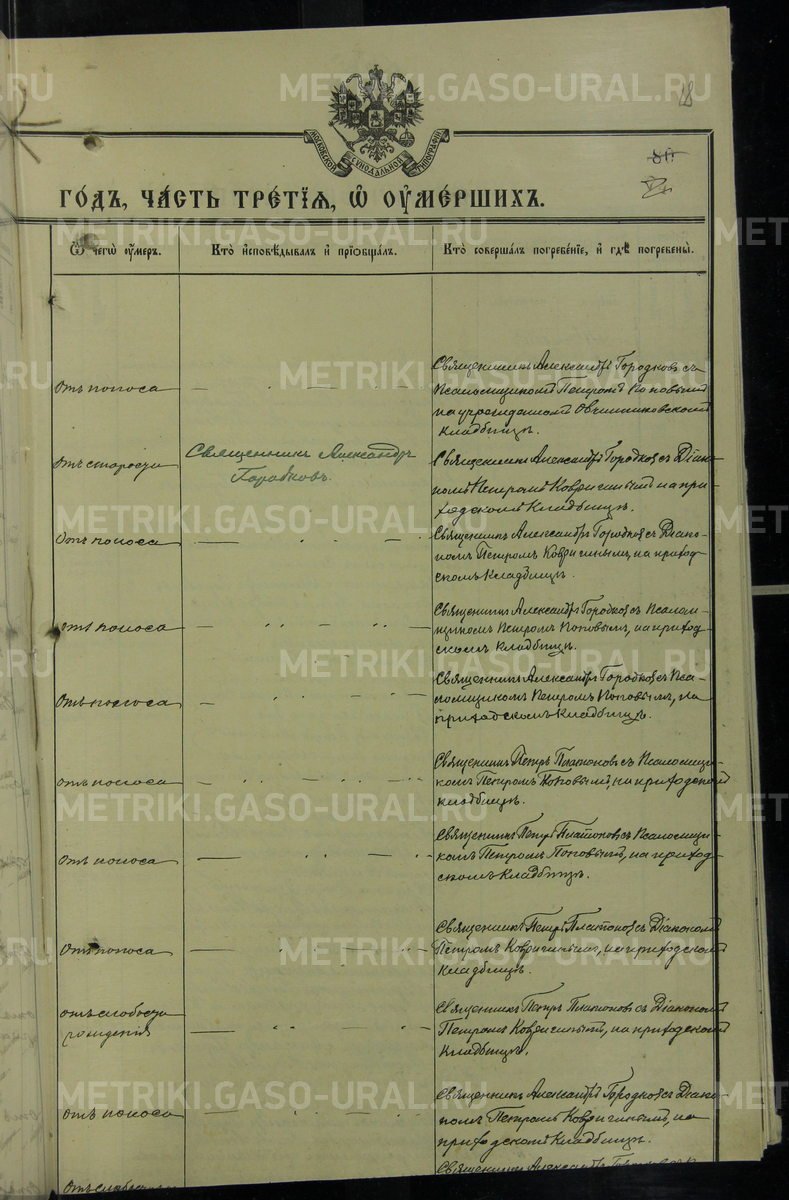 METRIKI.GASO-URAL.RU
18
МОСКОВСКОЙ СѴНОДАЛЬНОЙ ТИПОГРАФІИ
ГО́ДЪ, ЧА́СТЬ ТРЕ́ТІѦ, Ѽ ОУ҆МЕ́РШИХЪ.
Ѿ чегѡ̀ оу҆́меръ.
Кто̀ и҆сповѣ́дывалъ и҆ прїѻбща́лъ.
Кто̀ соверша́лъ погребе́нїе, и҆ гдѣ̀ погребены̀.
отъ поноса
Священникъ Александръ Городковъ съ
Псаломщикомъ Петромъ Поповымъ
на учрежденномъ Овчинниковскомъ
кладбищѣ.
отъ старости
Священникъ Александръ
Городковъ.
Священникъ Александръ Городковъ съ Діако-
номъ Петромъ Ковригинымъ на при-
ходскомъ кладбищѣ.
отъ поноса
Священникъ Александръ Городковъ съ Діако-
номъ Петромъ Ковригинымъ, на приход-
скомъ кладбищѣ.
отъ поноса
Священникъ Александръ Городковъ съ Псалом-
щикомъ Петромъ Поповымъ, на приход-
скомъ кладбищѣ.
отъ поноса
Священникъ Александръ Городковъ съ Пса-
ломщикомъ Петромъ Поповымъ, на
приходскомъ кладбищѣ.
отъ поноса
Священникъ Петръ Платоновъ съ Псаломщи-
комъ Петромъ Поповымъ, на приходскомъ
кладбищѣ.
отъ поноса
Священникъ Петръ Платоновъ съ Псаломщи-
комъ Петромъ Поповымъ, на приход-
скомъ кладбищѣ.
отъ поноса
Священникъ Петръ Платоновъ съ Діакономъ
Петромъ Ковригинымъ, на приходскомъ
кладбищѣ.
отъ слабости
рожденія
Священникъ Петръ Платоновъ съ Діакономъ
Петромъ Ковригинымъ, на приходскомъ
кладбищѣ.
отъ поноса
Священникъ Александръ Городковъ съ Діако-
номъ Петромъ Ковригинымъ, на
приходскомъ кладбищѣ.
Священникъ Александръ